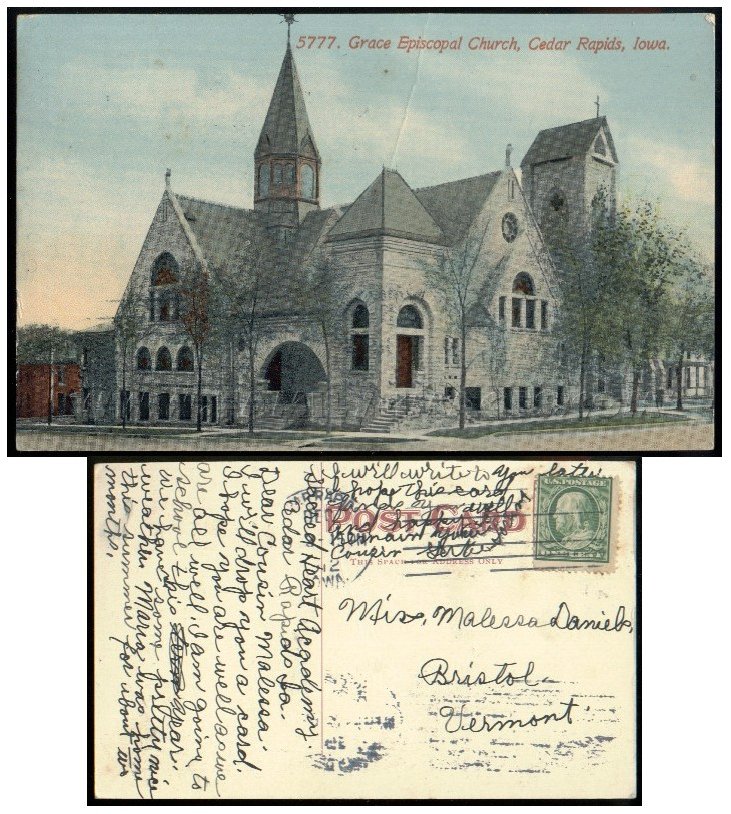 5777. Grace Episcopal Church, Cedar Rapids, Iowa.
Sacred Heart Academy.
Cedar Rapids Ia.
Dear Cousin Malessa.
I will drop you a card.
I hope you are well as we
are all well. I am going to
school this year.
we have some pretty nice
weather Maria was home
this summer for about two
months.
I will write to you later
I hope this card
finds you well
and happy
I remain your
Cousin
POST CARD
THIS SPACE FOR ADDRESS ONLY
U.S. POSTAGE
Miss. Malessa Daniels,
Bristol
Vermont